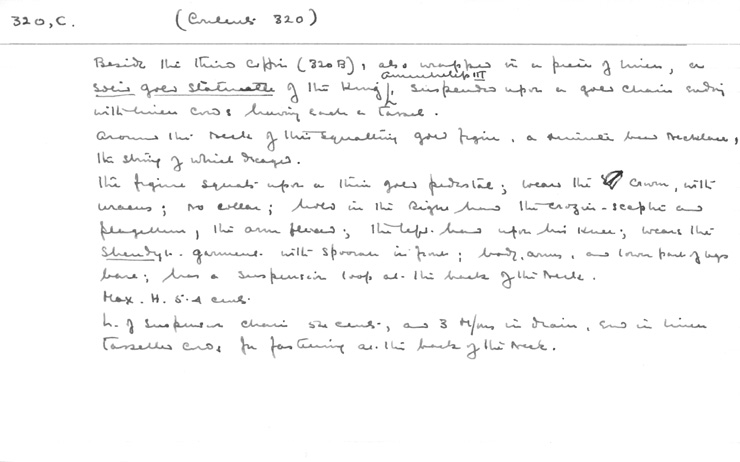 320, C. (Contents 320)
Beside the third coffin (320 B), also wrapped in a piece of linen, a
solid gold statuette of the King, suspended upon a gold chain ending
Amenhetep III
with linen cords having each a tassel.
Around the neck of this squatting gold figure, a minute bead necklace,
the string of which decayed.
The figure squats upon a thin gold pedestal; wears the crown, with
uraeus; no collar; holds in the right hand the crozier-sceptre and
flagellum, the arm flexed; the left hand upon his knee; wears the
Shendyt garment with sporran in front; body, arms, and lower part of legs
bare; has a suspension loop at the back of the neck.
Max. H. 5.4 cents.
L. of suspension chain 52 cents., and 3 M/ms in diam, end in linen
tasselled cords for fastening at the back of the neck.